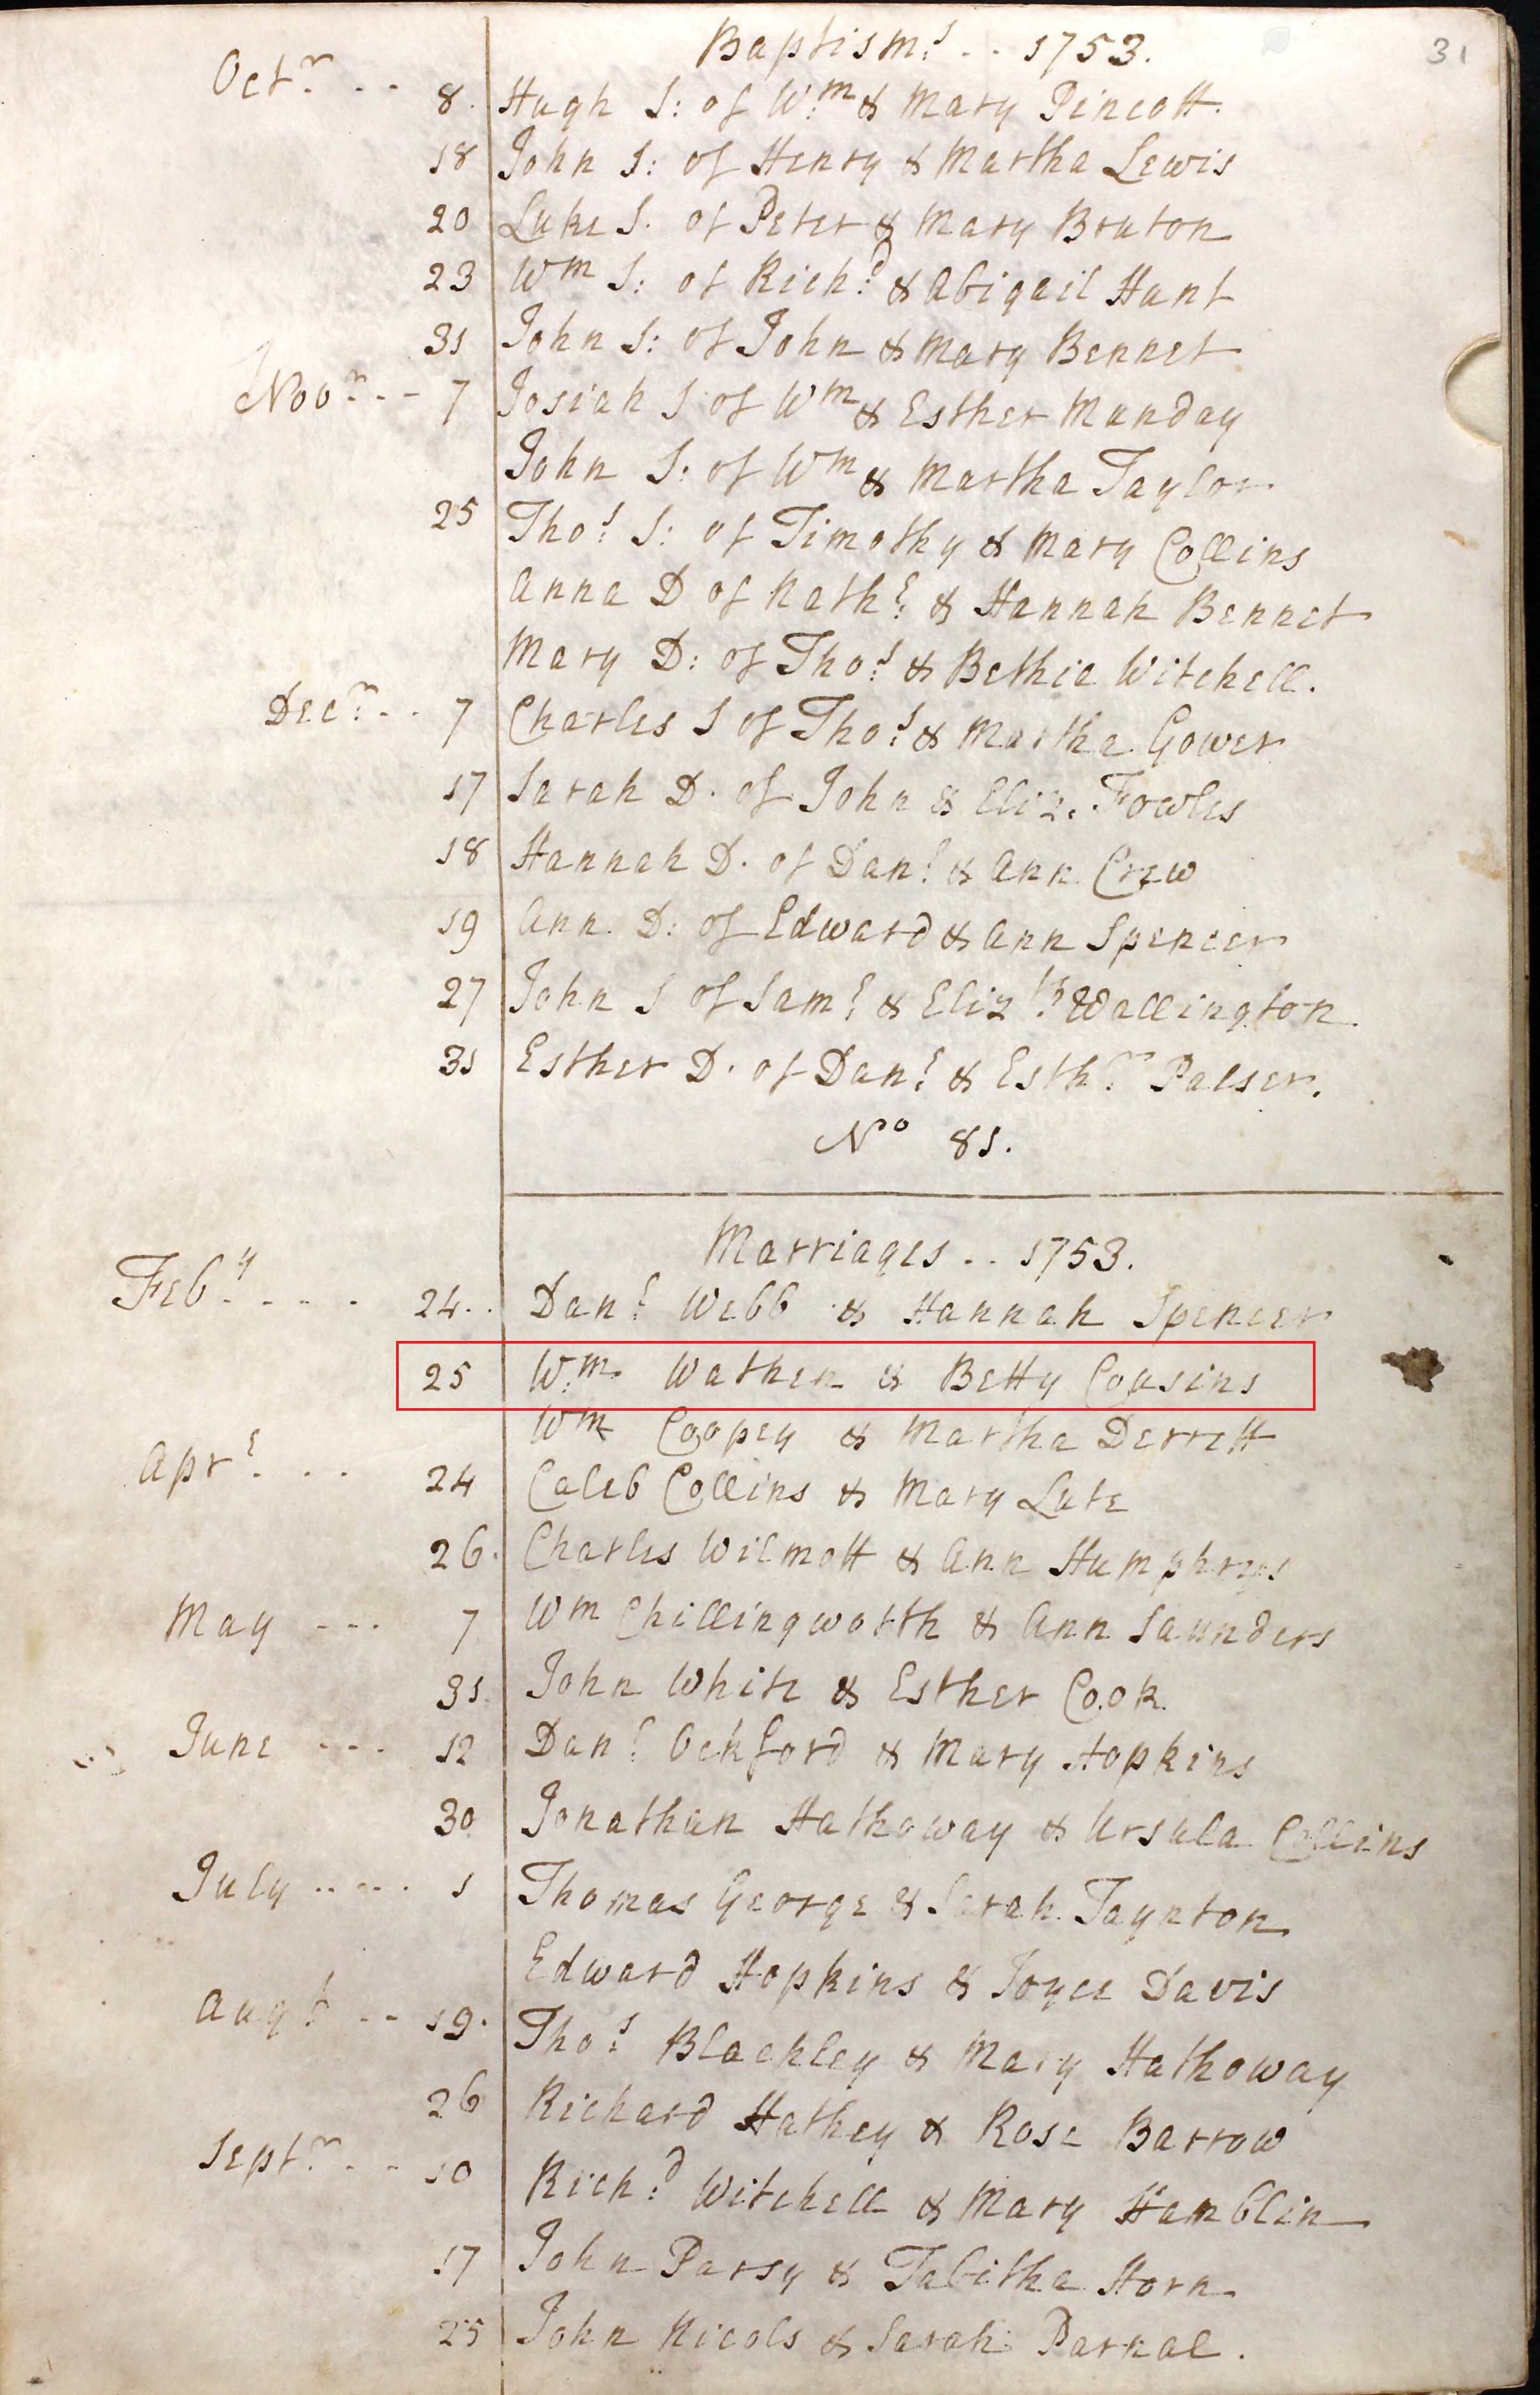 31
Baptism:s .. 1753.
Octr. .. 8. Hugh S: of W:m & Mary Pincott.
18 John S: of Henry & Martha Lewis
20 Luke S. of Peter & Mary Bruton
23 Wm S: of Rich:d & Abigail Hunt
31 John S: of John & Mary Bennet
Novr. .. 7 Josiah S of Wm & Esther Munday
John S: of Wm & Martha Taylor
25 Tho:s S: of Timothy & Mary Collins
Anna D of Nath:l & Hannah Bennet
Mary D: of Tho:s & Bethia Witchell.
Decr. .. 7 Charles S of Tho:s & Martha Gower
17 Sarah D. of John & Eliz. Fowles
18 Hannah D. of Dan:l & Ann Crew
19 Ann D: of Edward & Ann Spencer
27 John S of Sam:l & Eliz:th Wallington.
31 Esther D. of Dan:l & Esth:r Palser.
No 81.
Marriages .. 1753.
Feb:y .... 24.. Dan:l Webb & Hannah Spencer
25 W:m. Wathen & Betty Cousins
Wm Coopey & Martha Derrett
Apr:l .. 24 Caleb Collins & Mary Lute
26. Charles Wilmott & Ann Humphrys
May --- 7 Wm Chillingworth & Ann Saunders
31 John White & Esther Cook.
June --- 12 Dan:l Ockford & Mary Hopkins
30 Jonathan Hathoway & Ursula Collins
July .... 1 Thomas George & Sarah Taynton
Edward Hopkins & Joyce Davis
Augt -- 19. Tho:s Blackley & Mary Hathoway
26 Richard Hathey & Rose Barrow
Septr. .. 10 Rich:d Witchell & Mary Hamblin
17 John Parsy & Tabitha Horn.
25 John Nicols & Sarah Parnal.